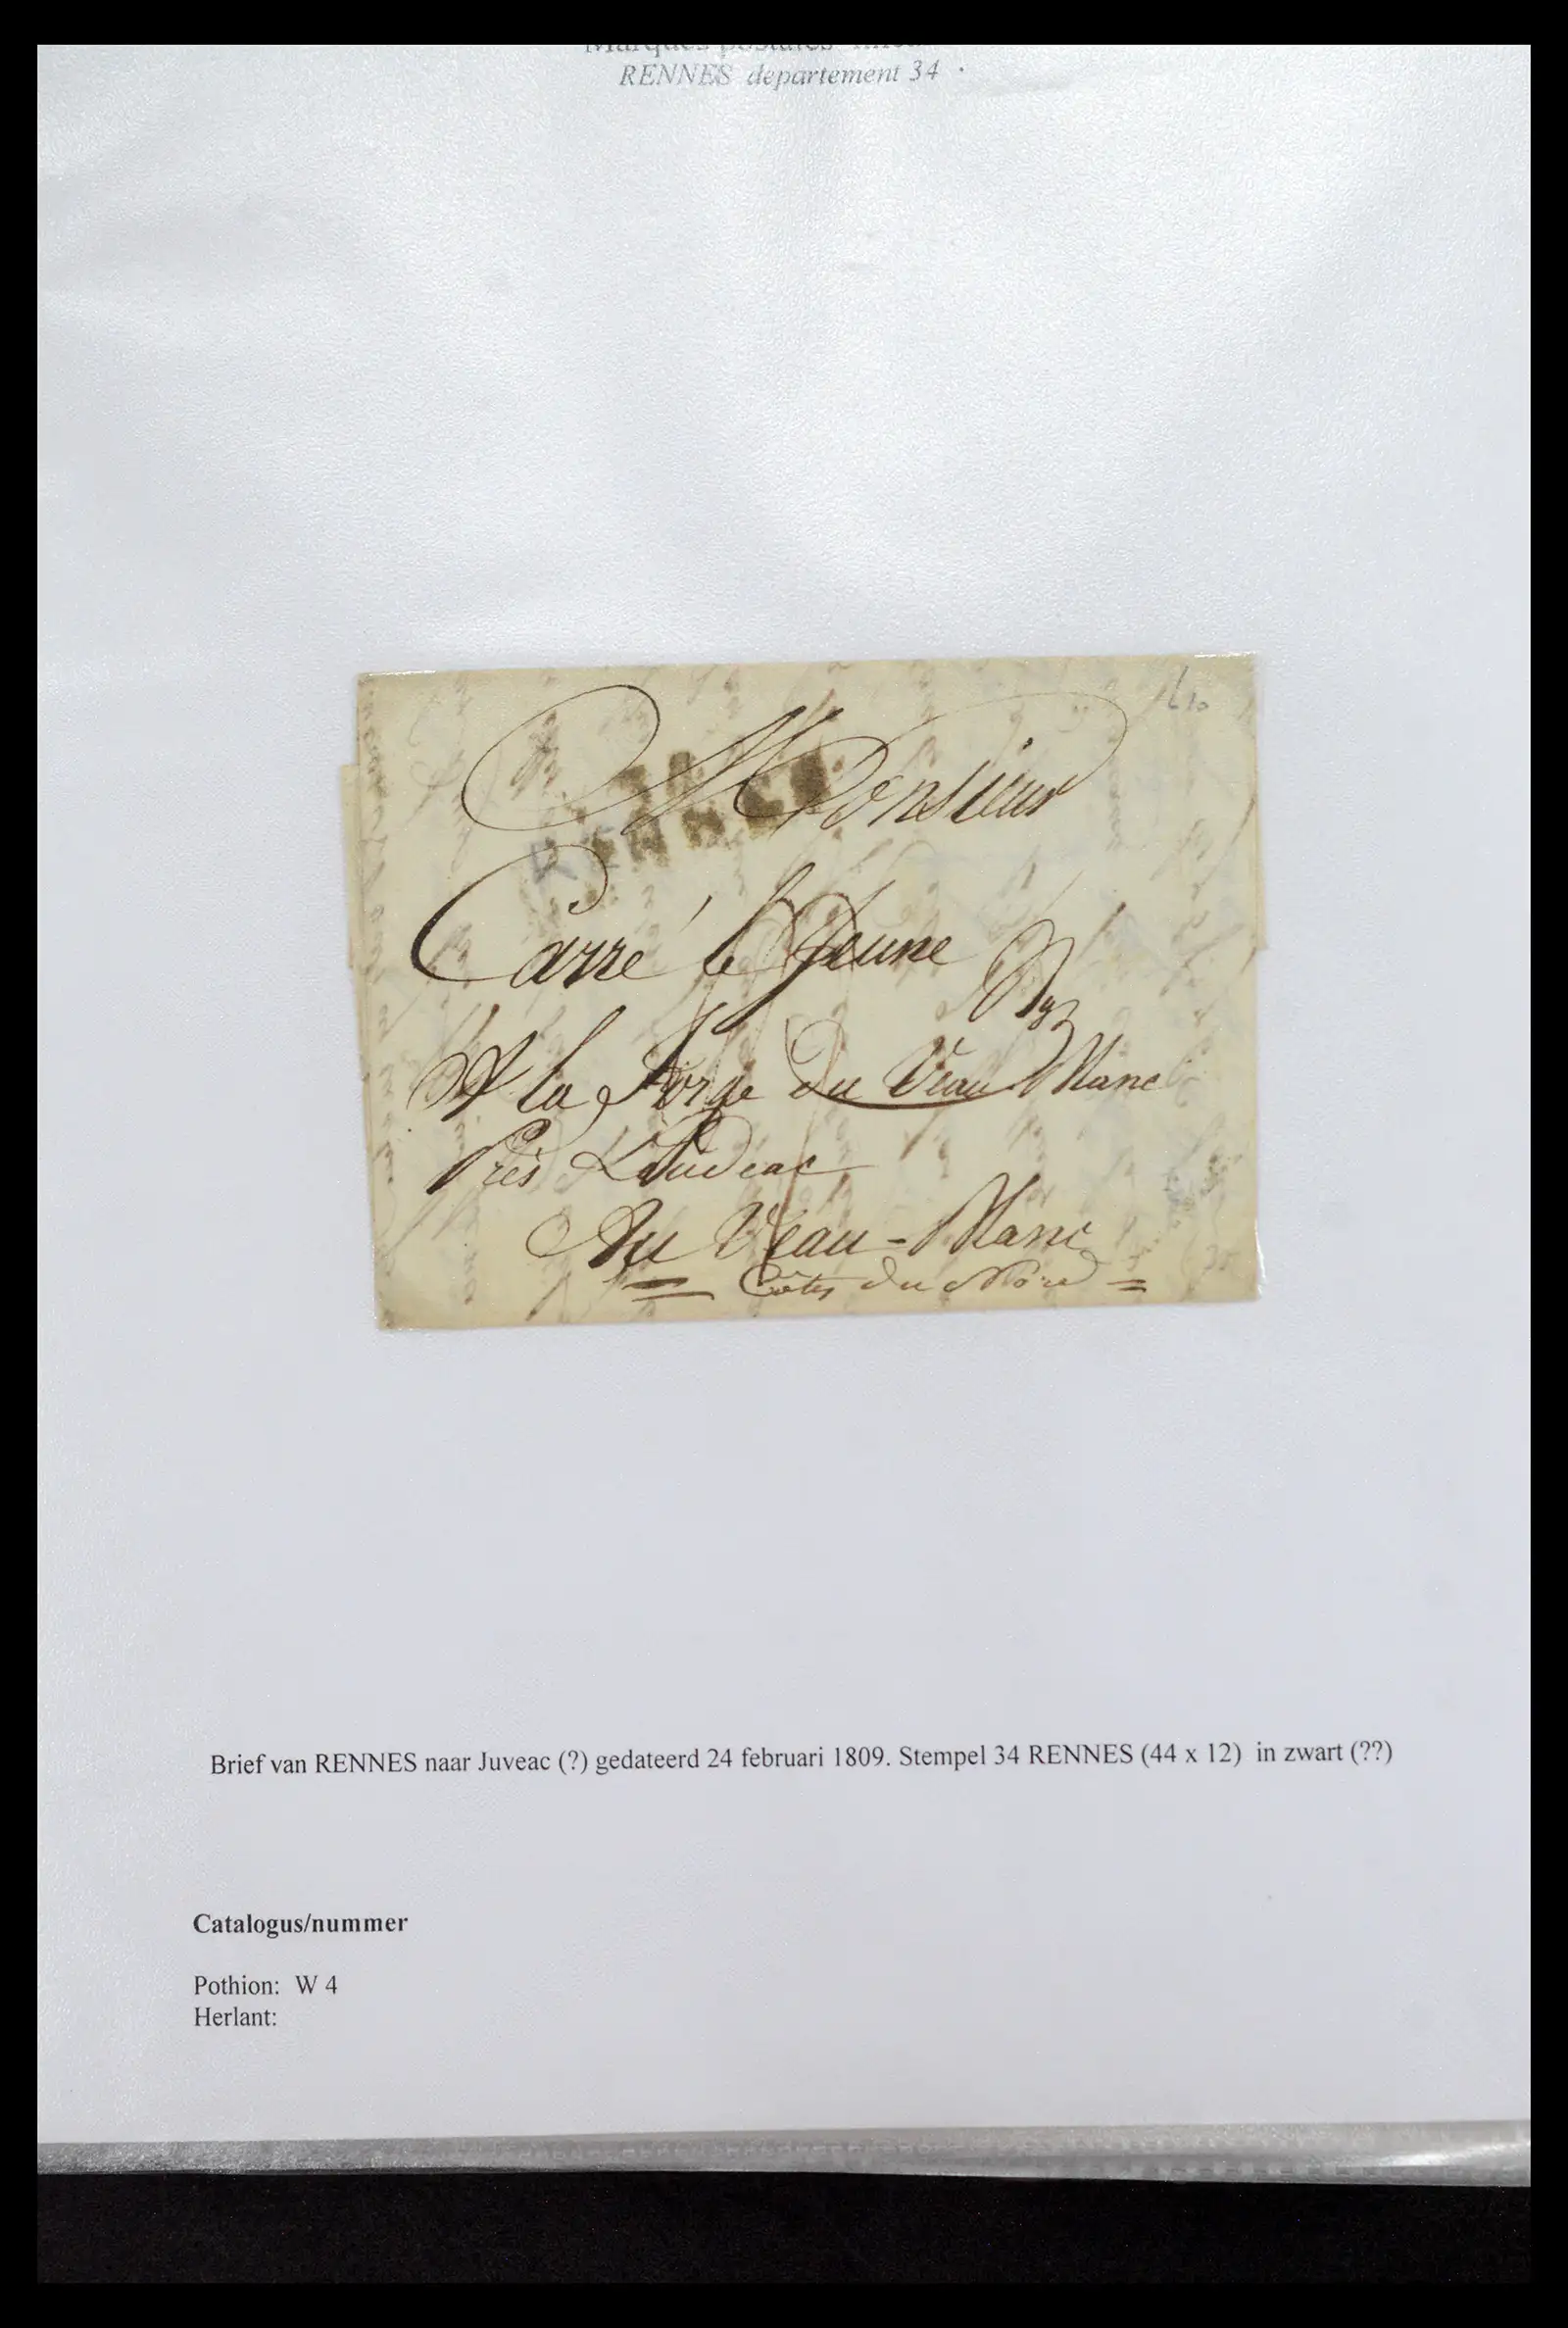 Marques postales
RENNES departement 34
34
RENNES
Monsieur
Carré le Jeune
A la Forge Du Veau Blanc
Près Loudeac
Au Veau - Blanc
= Côtes du Nord =
Brief van RENNES naar Juveac (?) gedateerd 24 februari 1809. Stempel 34 RENNES (44 x 12) in zwart (??)
Catalogus/nummer
Pothion: W 4
Herlant: